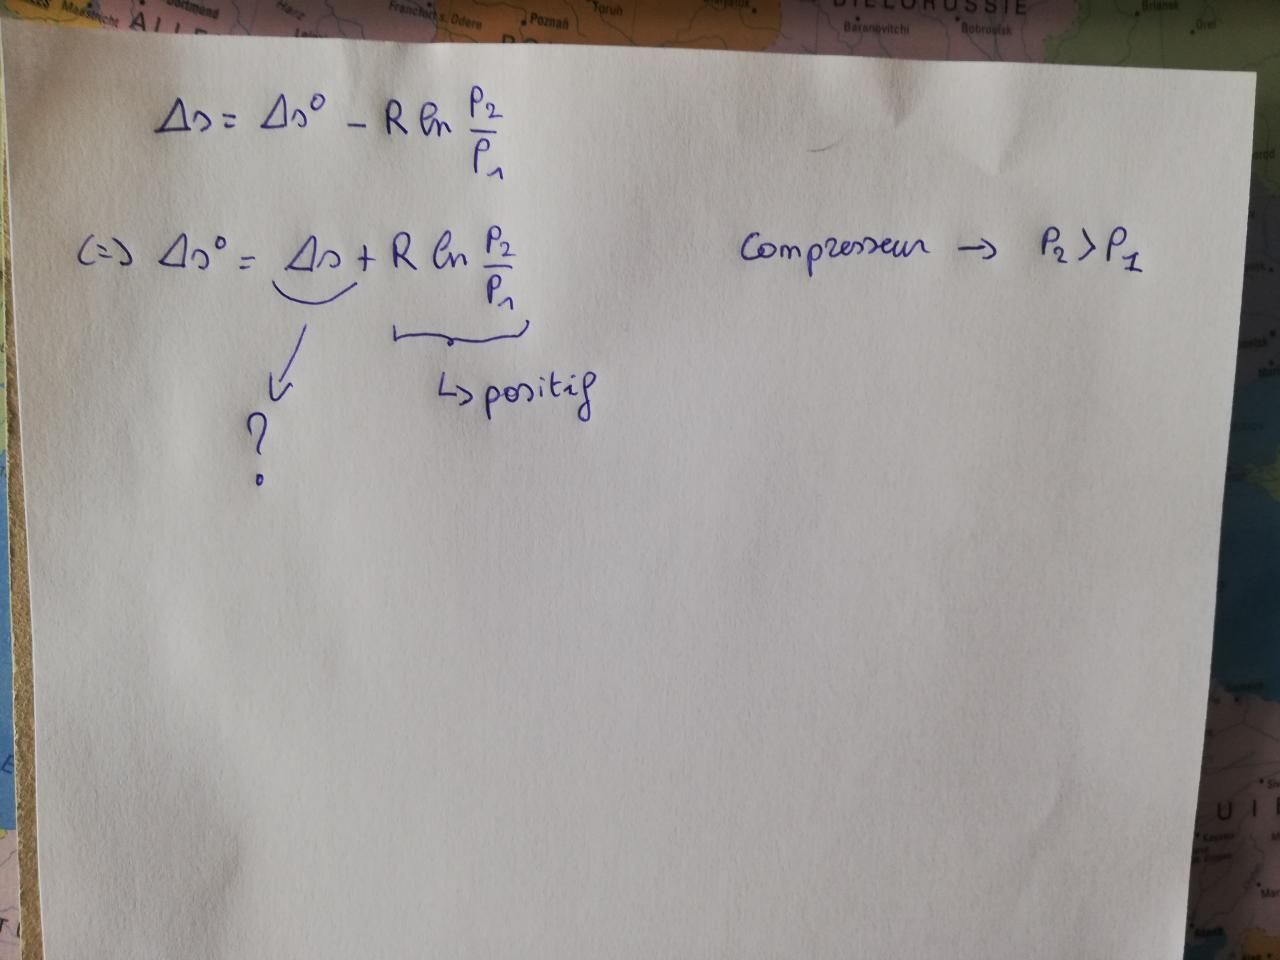 Maastricht
Dortmund
Harz
Francfort s. Odere
Poznań
Toruń
BIÉLORUSSIE
Baranovitchi
Bobrouisk
Briansk
Orel
Δs = Δs° - R ln P₂/P₁
(=) Δs° = Δs + R ln P₂/P₁
Compresseur → P₂ > P₁
?
↳ positif